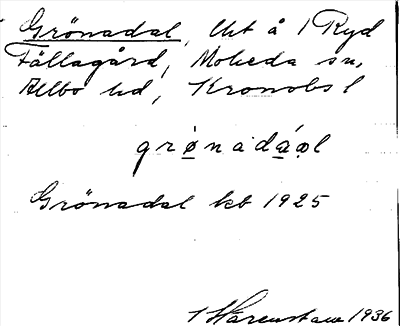 Grönadal, lht å 1 Ryd
Fällagård, Moheda sn,
Allbo hd, Kronobs l
grønadáol
Grönadal kb 1925
1936